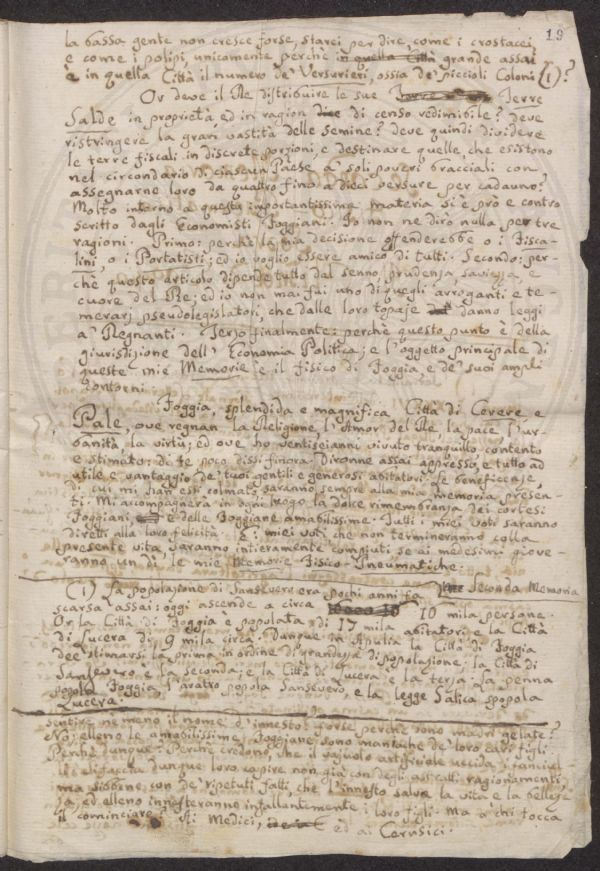 19
la bassa gente non cresce forse, starei per dire, come i crostacei,
e come i polipi, unicamente perchè in quella Città grande assai
è in quella Città il numero de' Versurieri, ossia de' piccioli Coloni (1)?
Or deve il Re distribuire le sue Terre Terre
Salde in proprietà ed in ragion di censo redimibile? deve
ristringere la gran vastità delle semine? deve quindi dividere
le terre fiscali in discrete porzioni, e destinare quelle che esistono
nel circondario di ciascun Paese a' soli poveri bracciali con
assegnarne loro da quattro fino a dieci versure per cadauno?
Molto intorno a questa importantissima materia si è pro e contro
scritto dagli Economisti Foggiani. Io non ne dirò nulla per tre
ragioni. Primo: perchè la mia decisione offenderebbe o i Fisca-
lini, o i Portatisti; ed io voglio essere amico di tutti. Secondo: per-
chè questo articolo dipende tutto dal senno, prudenza, saviezza e
cuore del Re; ed io non mai fui uno di quegli arroganti e te-
merarj pseudolegislatori, che dalle loro topaje danno leggi
a' Regnanti. Terzo finalmente: perchè questo punto è della
giurisdizione dell' Economia Politica; e l'oggetto principale di
queste mie Memorie è il fisico di Foggia, e de' suoi ampli
contorni.
Foggia, splendida e magnifica Città di Cerere e
Pale, ove regnan la Religione l'Amor del Re, la pace l'ur-
banità, la virtù; ed ove ho ventiseianni vivuto tranquillo contento
e stimato: di te poco dissi finora. Dironne assai appresso, e tutto ad
utile e vantaggio de' tuoi gentili e generosi abitatori. Le beneficenze,
di cui mi han essi colmato, saranno sempre alla mia memoria presen-
ti. Mi accompagnerà in ogni luogo la dolce rimembranza dei cortesi
Foggiani, e delle Foggiane amabilissime. Tutti i miei voti saranno
diretti alla loro felicità. E i miei voti che non termineranno colla
presente vita, saranno intieramente compiuti se ai medesimi giove-
ranno un dì le mie Memorie Fisico-Pneumatiche.
Seconda Memoria
(1) La popolazione di Sansevero era pochi anni fa
scarsa assai: oggi ascende a circa 16 mila persone.
Or la Città di Foggia è popolata di 17 mila abitatori e la Città
di Lucera di 9 mila circa. Dunque in Apulia la Città di Foggia
dee stimarsi la prima in ordine di grandezza di popolazione: la Città di
Sansevero è la seconda; e la Città di Lucera è la terza. La penna
popola Foggia, l'aratro popola Sansevero, e la legge Salica spopola
Lucera.
sentire nemeno il nome d'innesto. Forse perchè sono madri gelate?
No; elleno le amabilissime Foggiane sono maniache de' loro cari figli.
Perchè dunque? Perchè credono, che il vajuolo artificiale uccida i fanciul-
li. Si faccia dunque loro capire non già con degli astratti ragionamenti,
ma sibbene con de' ripetuti fatti, che l'innesto salva la vita e la bellez-
za; ed elleno innesteranno infallantemente i loro figli. Ma a chi tocca
il cominciare? Ai Medici, ed ai Cerusici.